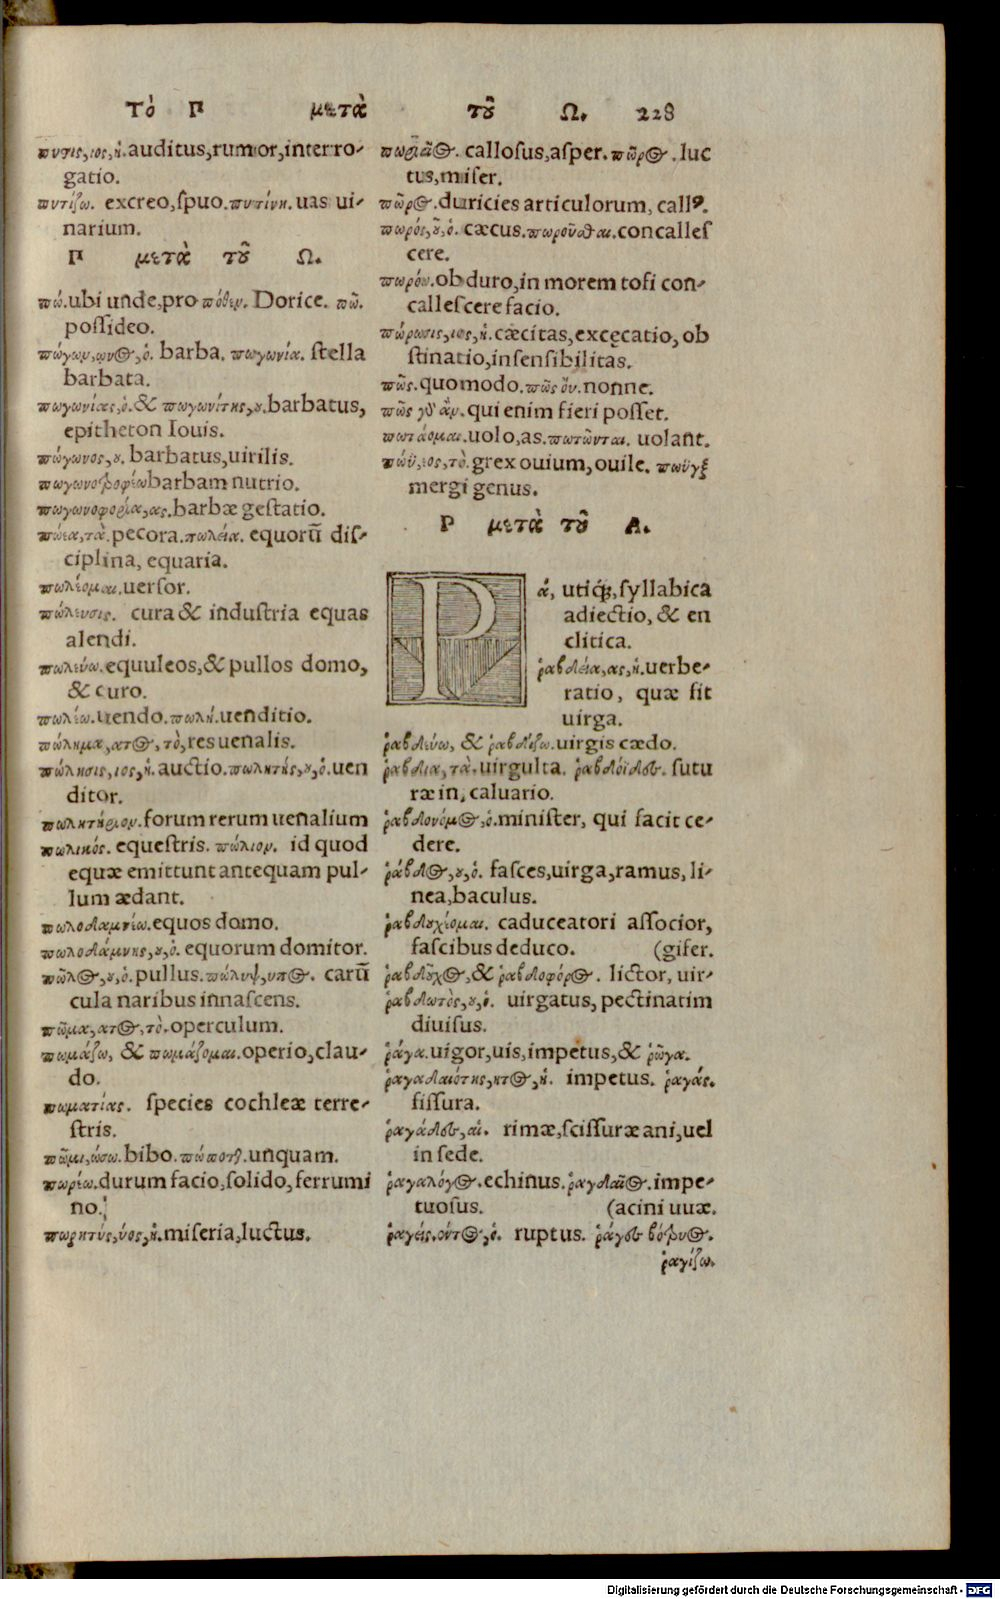 Τὸ Π μετὰ τοῦ Ω. 228
πυσις, ιος, ἡ. auditus, rumor, interro-
gatio.
πυτίζω. excreo, spuo. πυτίνη. uas ui-
narium.
Π μετὰ τοῦ Ω.
πώ. ubi unde, pro πόθεν. Dorice. πῶ.
possideo.
πώγων, ωνος, ὁ. barba. πωγωνία. stella
barbata.
πωγωνίας, ὁ. & πωγωνίτης, ου. barbatus,
epitheton Iouis.
πώγωνος, ου. barbatus, uirilis.
πωγωνοτροφέω barbam nutrio.
πωγωνοφορία, ας. barbæ gestatio.
πώεα, τὰ. pecora. πωλεία. equorū dis-
ciplina, equaria.
πωλέομαι. uersor.
πώλευσις. cura & industria equas
alendi.
πωλεύω. equuleos, & pullos domo,
& curo.
πωλέω. uendo. πωλή. uenditio.
πώλημα, ατος, τὸ, res uenalis.
πώλησις, ιος, ἡ. auctio. πωλητής, ου, ὁ. uen
ditor.
πωλητήριον. forum rerum uenalium
πωλικός. equestris. πώλιον. id quod
equæ emittunt antequam pul-
lum ædant.
πωλοδαμνέω. equos domo.
πωλοδάμνης, ου, ὁ. equorum domitor.
πῶλος, ου, ὁ. pullus. πώλυψ, υπος. carū
cula naribus innascens.
πῶμα, ατος, τὸ. operculum.
πωμάζω, & πωμάζομαι. operio, clau-
do.
πωματίας. species cochleæ terre-
stris.
πῶμι, ώσω. bibo. πώποτε. unquam.
πωρέω. durum facio, solido, ferrumi
no.
πωρητύς, ύος, ἡ. miseria, luctus.
callosus, asper. πῶρος. luc
tus, miser.
πῶρος. duricies articulorum, callꝰ.
πωρός, οῦ, ὁ. cæcus. πωροῦσθαι. concalles
cere.
πωρόω. obduro, in morem tofi con-
callescere facio.
πώρωσις, ιος, ἡ. cæcitas, excęcatio, ob
stinatio, insensibilitas.
πῶς. quomodo. πῶς οὖν. nonne.
πῶς γὰρ ἄν. qui enim fieri posset.
πωτάομαι. uolo, as. πωτῶνται. uolant.
πώϋ, ιος, τὸ. grex ouium, ouile. πωϋγξ
mergi genus.
Ρ μετὰ τοῦ Α.
Ρά, utiq;, syllabica
adiectio, & en
clitica.
ῥαβδεία, ας, ἡ. uerbe-
ratio, quæ fit
uirga.
ῥαβδεύω, & ῥαβδίζω. uirgis cædo.
ῥαβδία, τὰ. uirgulta. ῥαβδοϊδες. sutu
ræ in caluario.
ῥαβδονόμος, ὁ. minister, qui facit ce-
dere.
ῥάβδος, ου, ὁ. fasces, uirga, ramus, li-
nea, baculus.
ῥαβδουχέομαι. caduceatori associor,
fascibus deduco. (gifer.
ῥαβδοῦχος, & ῥαβδοφόρος. lictor, uir-
ῥαβδωτὸς, ου, ὁ. uirgatus, pectinatim
diuisus.
ῥάγα. uigor, uis, impetus, & ῥῶγα.
ῥαγδαιότης, ητος, ἡ. impetus. ῥαγάς.
fissura.
ῥαγάδες, αἱ. rimæ, scissuræ ani, uel
in sede.
ῥαγαλόγος. echinus. ῥαγδαῖος. impe-
tuosus. (acini uuæ.
ῥαγείς. όντος, ὁ. ruptus. ῥάγες βότρυος.
ῥαγίζω.
Digitalisierung gefördert durch die Deutsche Forschungsgemeinschaft - DFG